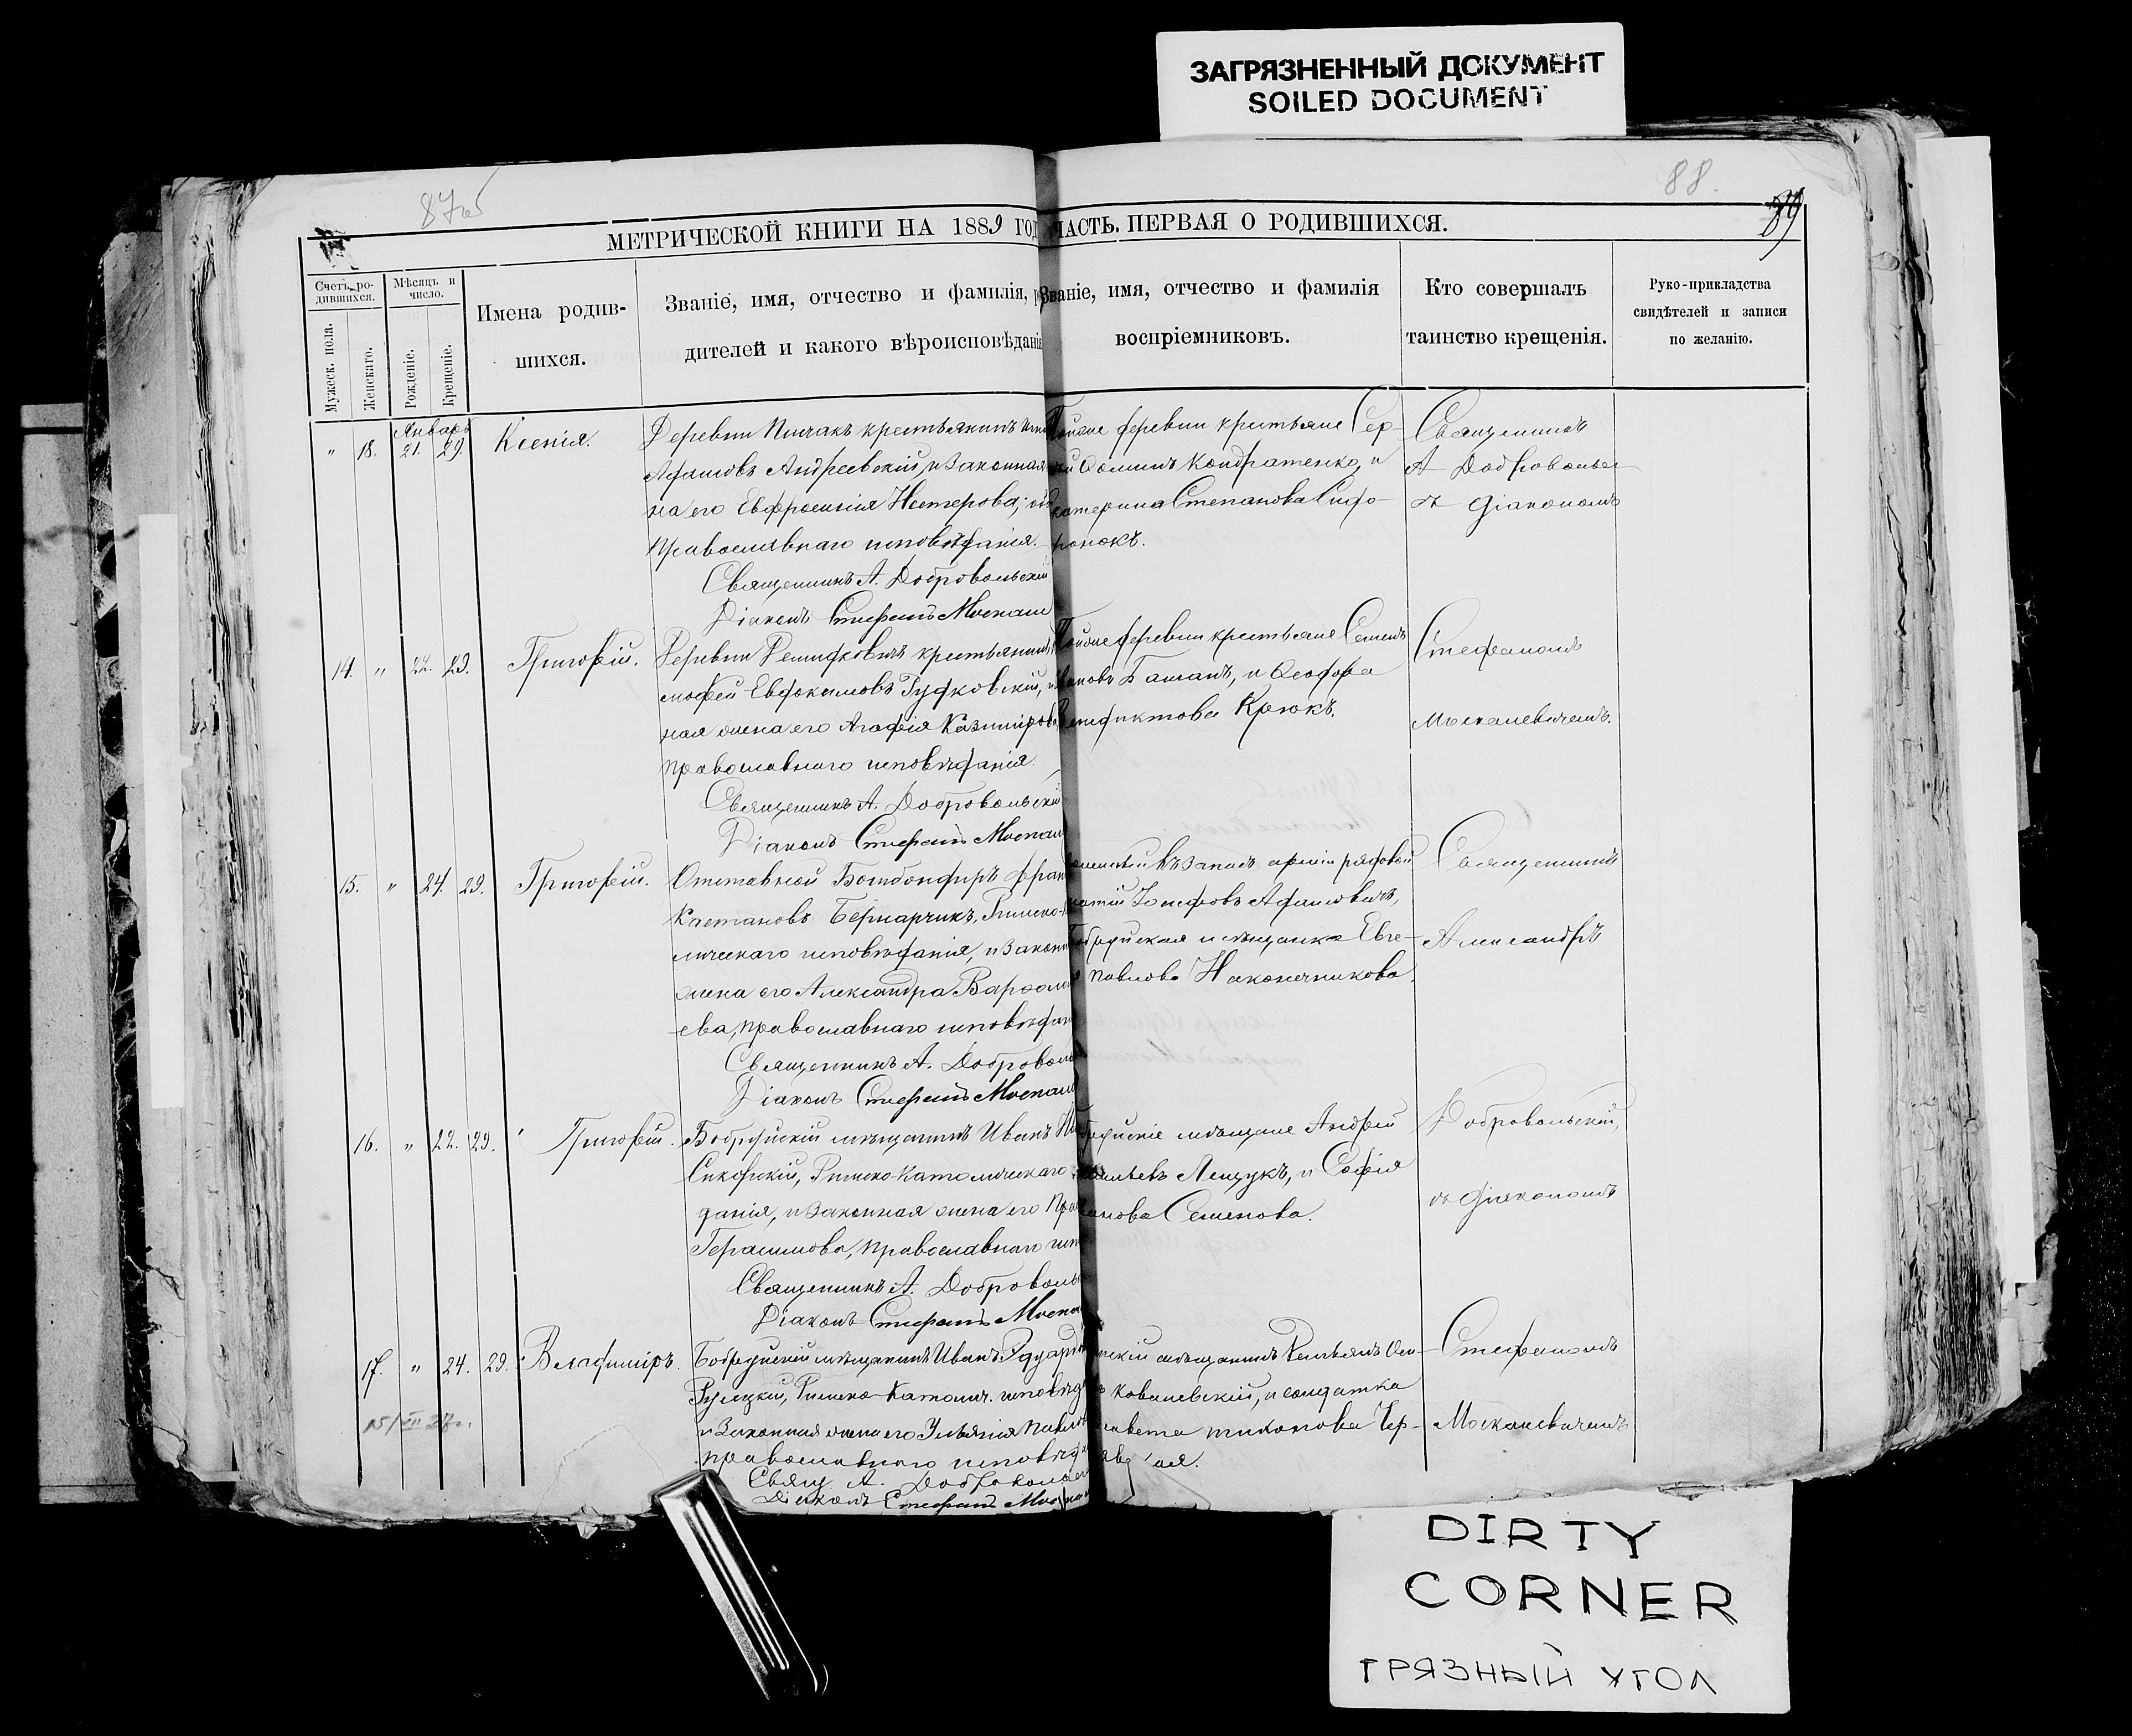 ЗАГРЯЗНЕННЫЙ ДОКУМЕНТ
SOILED DOCUMENT
87об
88.
89
МЕТРИЧЕСКОЙ КНИГИ НА 1889 ГОД
ЧАСТЬ ПЕРВАЯ О РОДИВШИХСЯ.
Счетъ ро-
дившихся.
Мужеск. пола.
Женскаго.
Мѣсяцъ и
число.
Рожденіе.
Крещеніе.
Имена родив-
шихся.
Званіе, имя, отчество и фамилія, р
дителей и какого вѣроисповѣдані
Званіе, имя, отчество и фамилія
воспріемниковъ.
Кто совершалъ
таинство крещенія.
Руко-прикладства
свидѣтелей и записи
по желанію.
Январь
" 18. 21. 29. Ксенія.
Деревни Пинчакъ крестьянинъ
Адамовъ Андреевскій, и законная
на его Евфросинія Нестерова;
православнаго исповѣданія.
Священникъ А. Добровольскій
Діаконъ Стефанъ Москале
деревни крестьяне Сер-
Ѳоминъ Кондратенко, и
катерина Степанова Сидо-
ронокъ.
Священникъ
А Добровольс
съ діакономъ
14. " 22. 29. Григорій.
Деревни крестьянинъ
мофей Евдокимовъ Рудковскій,
ная жена его Агафія Казимирова
православнаго исповѣданія
Священникъ А. Добровольскій
Діаконъ Стефанъ Москал
деревни крестьяне Семенъ
ановъ Баланъ, и Ѳеодора
Венедиктова Крюкъ.
Стефаномъ
Москалевичемъ.
15. " 24. 29. Григорій.
Отставной Бомбондиръ Фран
Каетановъ Бернарчикъ, Римско-
лическаго исповѣданія, и закон
жена его Александра Варѳолом
-ева, православнаго исповѣдан
Священникъ А. Доброволь
Діаконъ Стефанъ Москале
въ запасъ арміи рядовой
натій Іосифовъ Адамовичъ,
обруйская мѣщанка Евге-
Павлова Наконечникова.
Священникъ
Александръ
16. " 22. 29. Григорій.
Бобруйскій мѣщанинъ Иванъ
Сикорскій, Римско-Католическаго
данія, и законная жена его Пра
Герасимова, православнаго исп
Священникъ А. Доброволь
Діаконъ Стефанъ Моска
бруйскіе мѣщане Андрей
Лещукъ, и Софія
анова Семенова.
Добровольскій,
съ діакономъ
17. " 24. 29. Владиміръ.
15/XII 27г.
Бобруйскій мѣщанинъ Иванъ Эдуард
Рулицкій, Римско-Католич. исповѣд
и законная жена его Ульянія Павлов
православнаго исповѣд
Свящ А. Добровольс
Діаконъ Стефанъ Мос
йскій мѣщанинъ Оси-
Ковалевскій, и солдатка
савета Тихонова Чер-
ая.
Стефаномъ
Москалевичемъ
DIRTY
CORNER
ГРЯЗНЫЙ УГОЛ